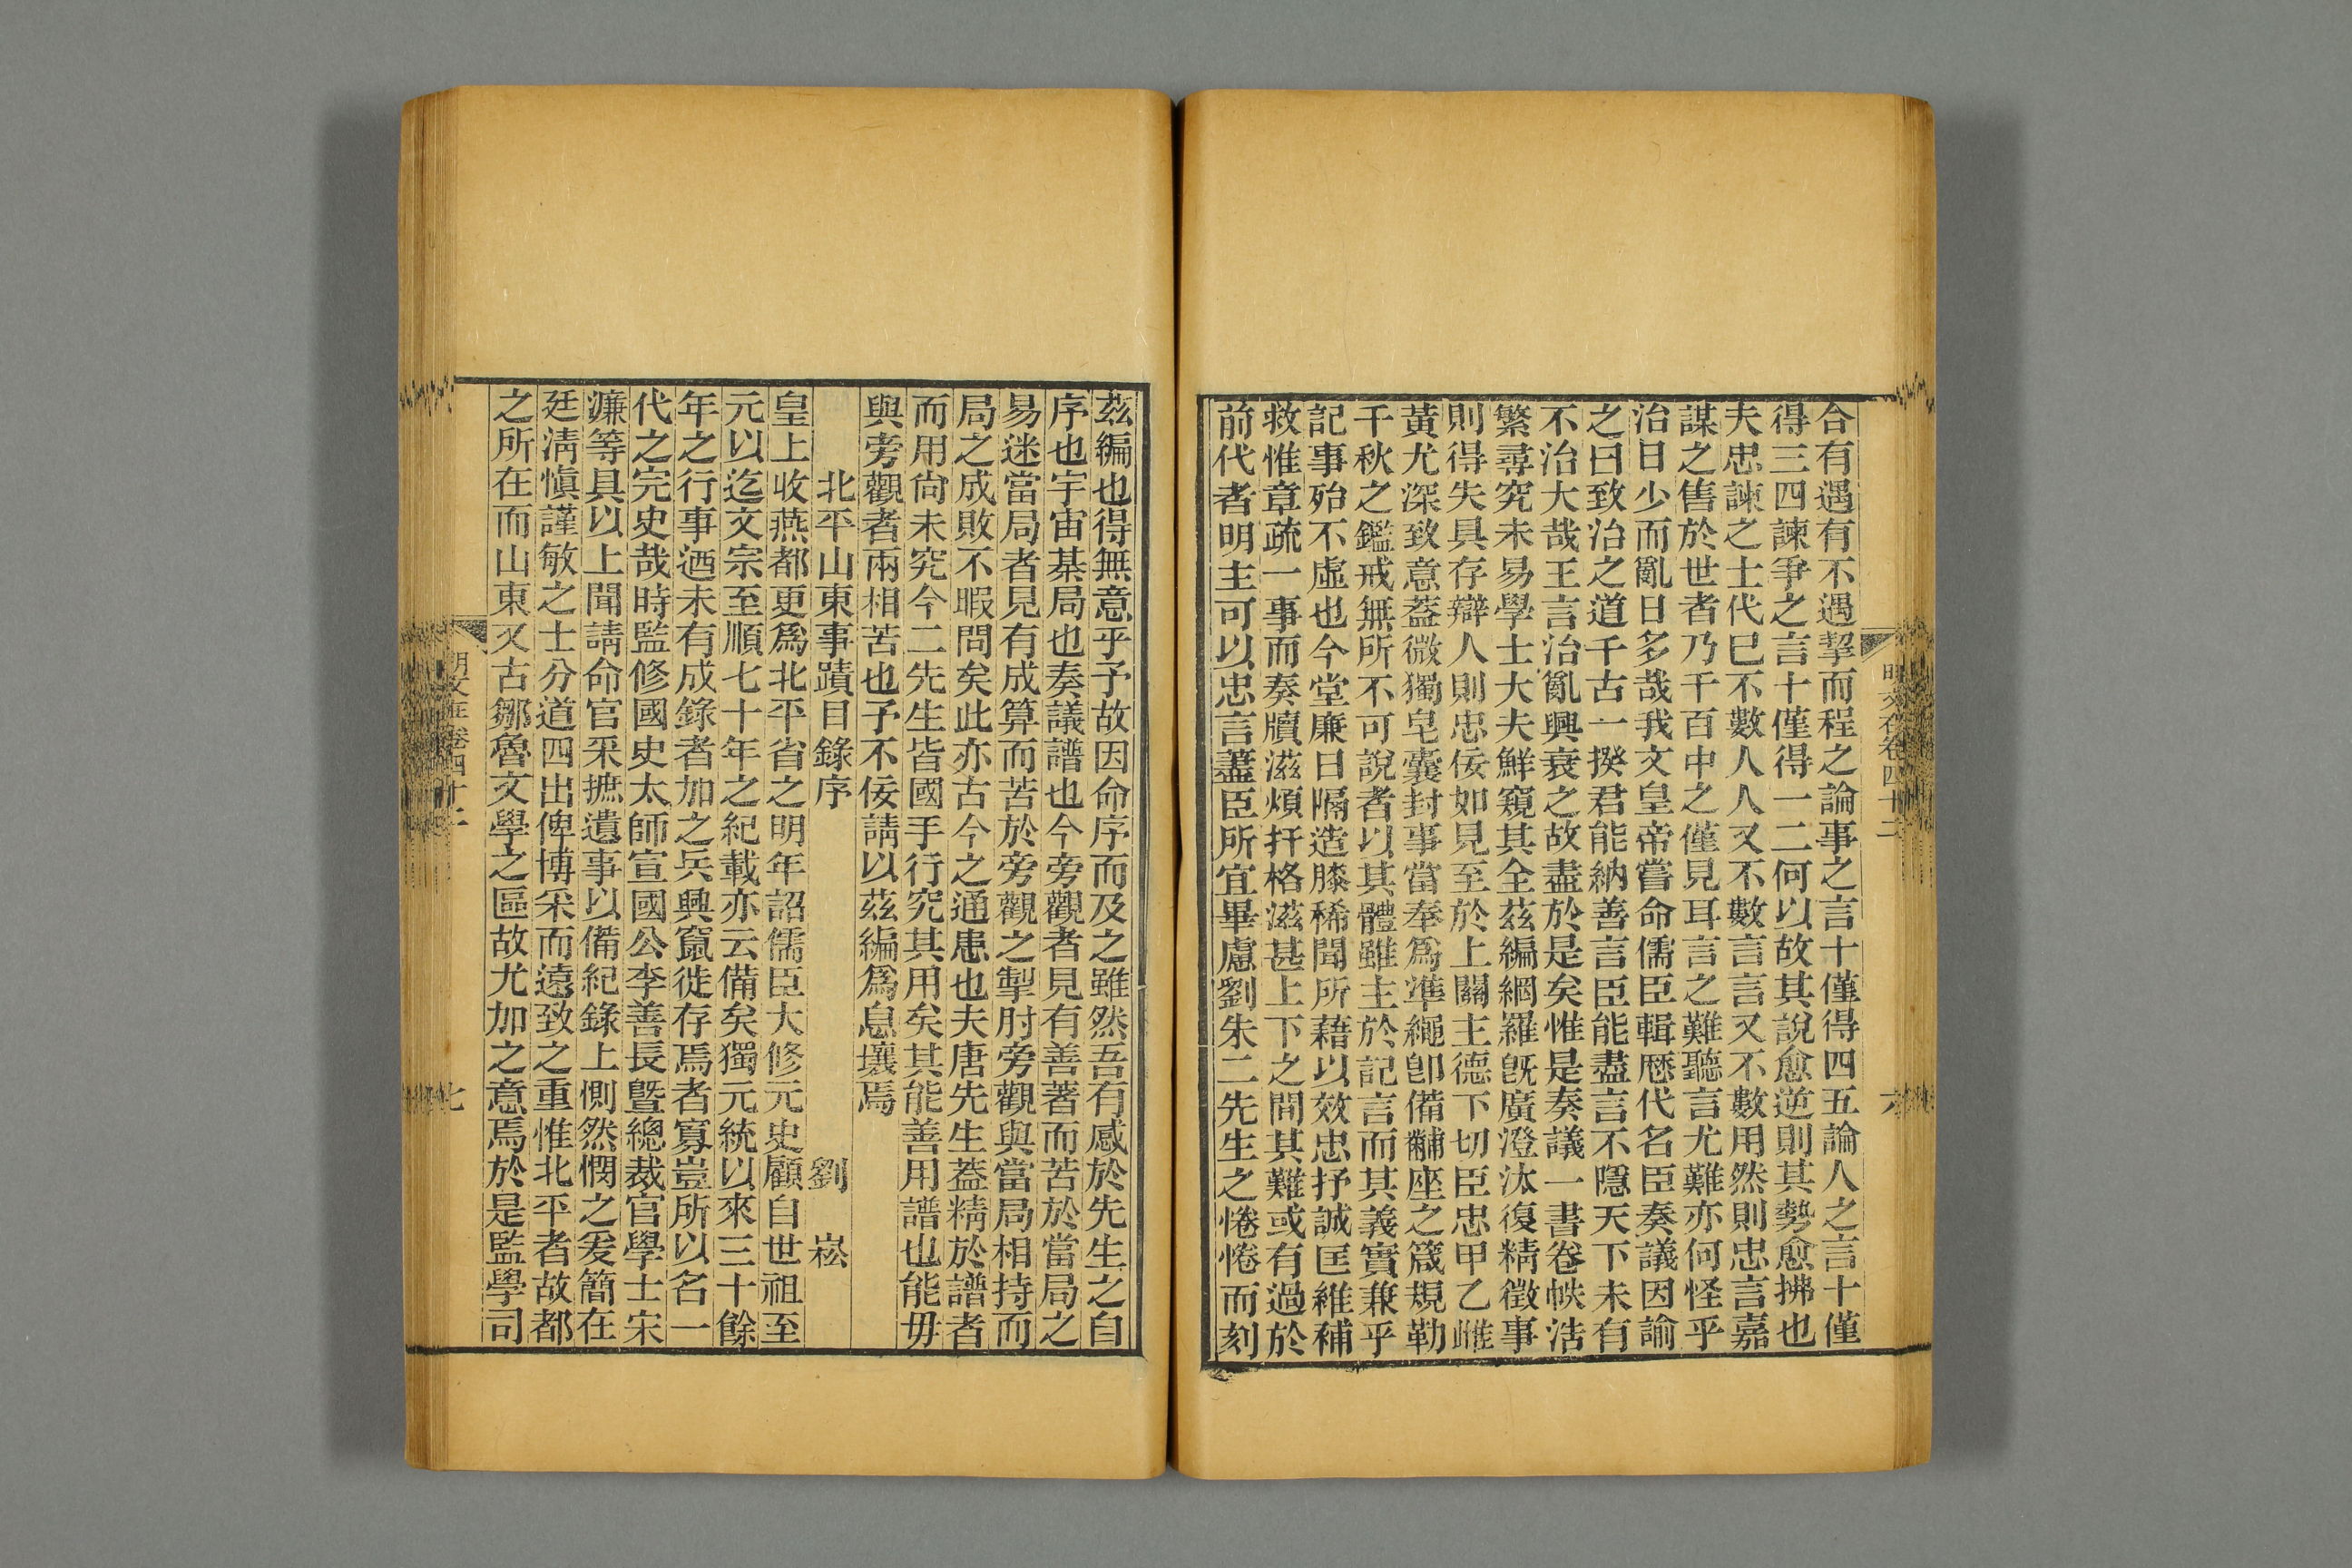 合有遇有不遇挈而程之論事之言十僅得四五論人之言十僅
得三四諫爭之言十僅得一二何以故其說愈逆則其勢愈拂也
夫忠諫之士代巳不數人人又不數言言又不數用然則忠言嘉
謀之售於世者乃千百中之僅見耳言之難聽言尤難亦何怪乎
治日少而亂日多哉我文皇帝嘗命儒臣輯歷代名臣奏議因諭
之曰致治之道千古一揆君能納善言臣能盡言不隱天下未有
不治大哉王言治亂興衰之故盡於是矣惟是奏議一書卷帙浩
繁尋究未易學士大夫鮮窺其全茲編綱羅旣廣澄汰復精徵事
則得失具存辯人則忠佞如見至於上關主德下切臣忠甲乙雌
黃尤深致意葢微獨皂囊封事當奉爲準繩卽備黼座之箴規勒
千秋之鑑戒無所不可說者以其體雖主於記言而其義實兼乎
記事殆不虛也今堂廉日隔造膝稀聞所藉以效忠抒誠匡維補
救惟章疏一事而奏牘滋煩扞格滋甚上下之間其難或有過於
前代者明主可以忠言藎臣所宜畢慮劉朱二先生之惓惓而刻
明文在卷四十二
六
茲編也得無意乎予故因命序而及之雖然吾有感於先生之自
序也宇宙棊局也奏議譜也今旁觀者見有善著而苦於當局之
易迷當局者見有成算而苦於旁觀之掣肘旁觀與當局相持而
局之成敗不暇問矣此亦古今之通患也夫唐先生葢精於譜者
而用尙未究今二先生皆國手行究其用矣其能善用譜也能毋
與旁觀者兩相苦也予不佞請以茲編爲息壤焉
北平山東事蹟目錄序　劉崧
皇上收燕都更爲北平省之明年詔儒臣大修元史顧自世祖至
元以迄文宗至順七十年之紀載亦云備矣獨元統以來三十餘
年之行事迺未有成錄者加之兵興竄徙存焉者寡豈所以名一
代之完史哉時監修國史太師宣國公李善長曁總裁官學士宋
濂等具以上聞請命官采摭遺事以備紀錄上惻然憫之爰簡在
廷淸愼謹敏之士分道四出俾博采而遠致之重惟北平者故都
之所在而山東又古鄒魯文學之區故尤加之意焉於是監學司
明文在卷四十二
七